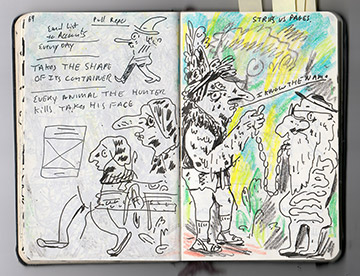 89
Email List
to Accounts
Every Day
Full Page
TAKES THE SHAPE
OF ITS CONTAINER
EVERY ANIMAL THE HUNTER
KILLS TAKES HIS FACE
STRIPS VS PAGES
I KNOW THE NAME